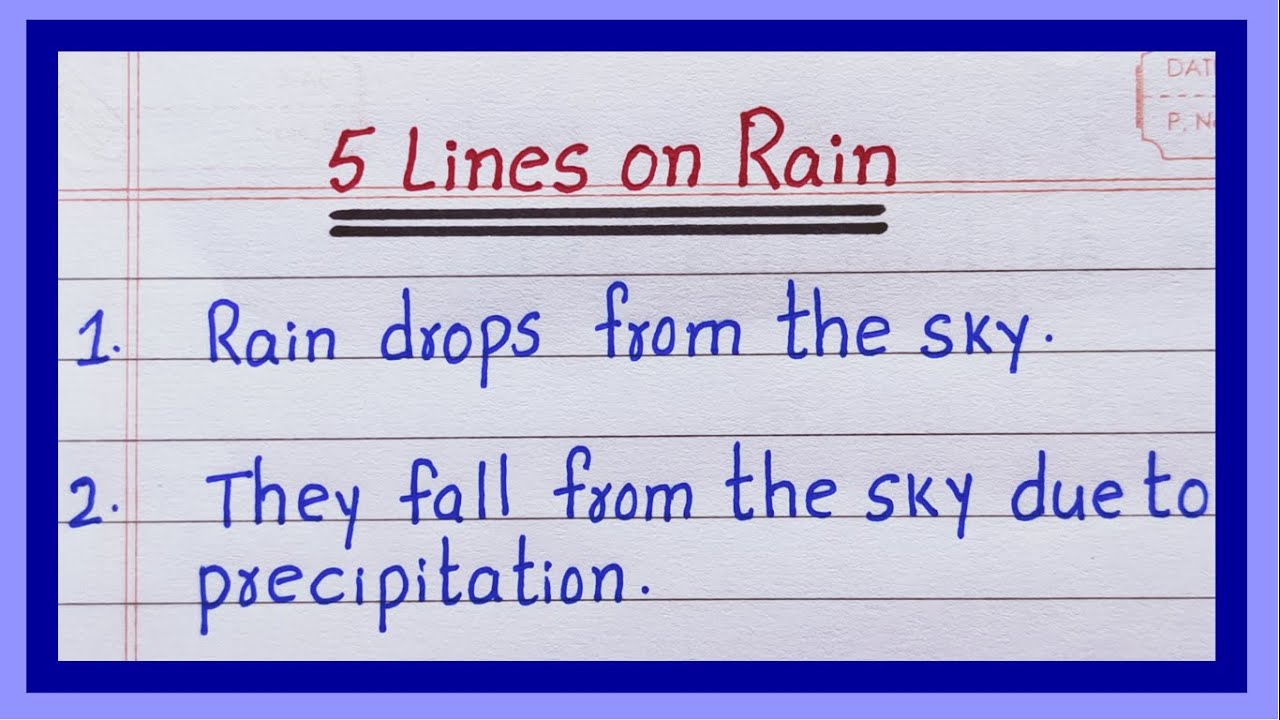 DAT
P. No
5 Lines on Rain
1. Rain drops from the sky.
2. They fall from the sky due to
precipitation.